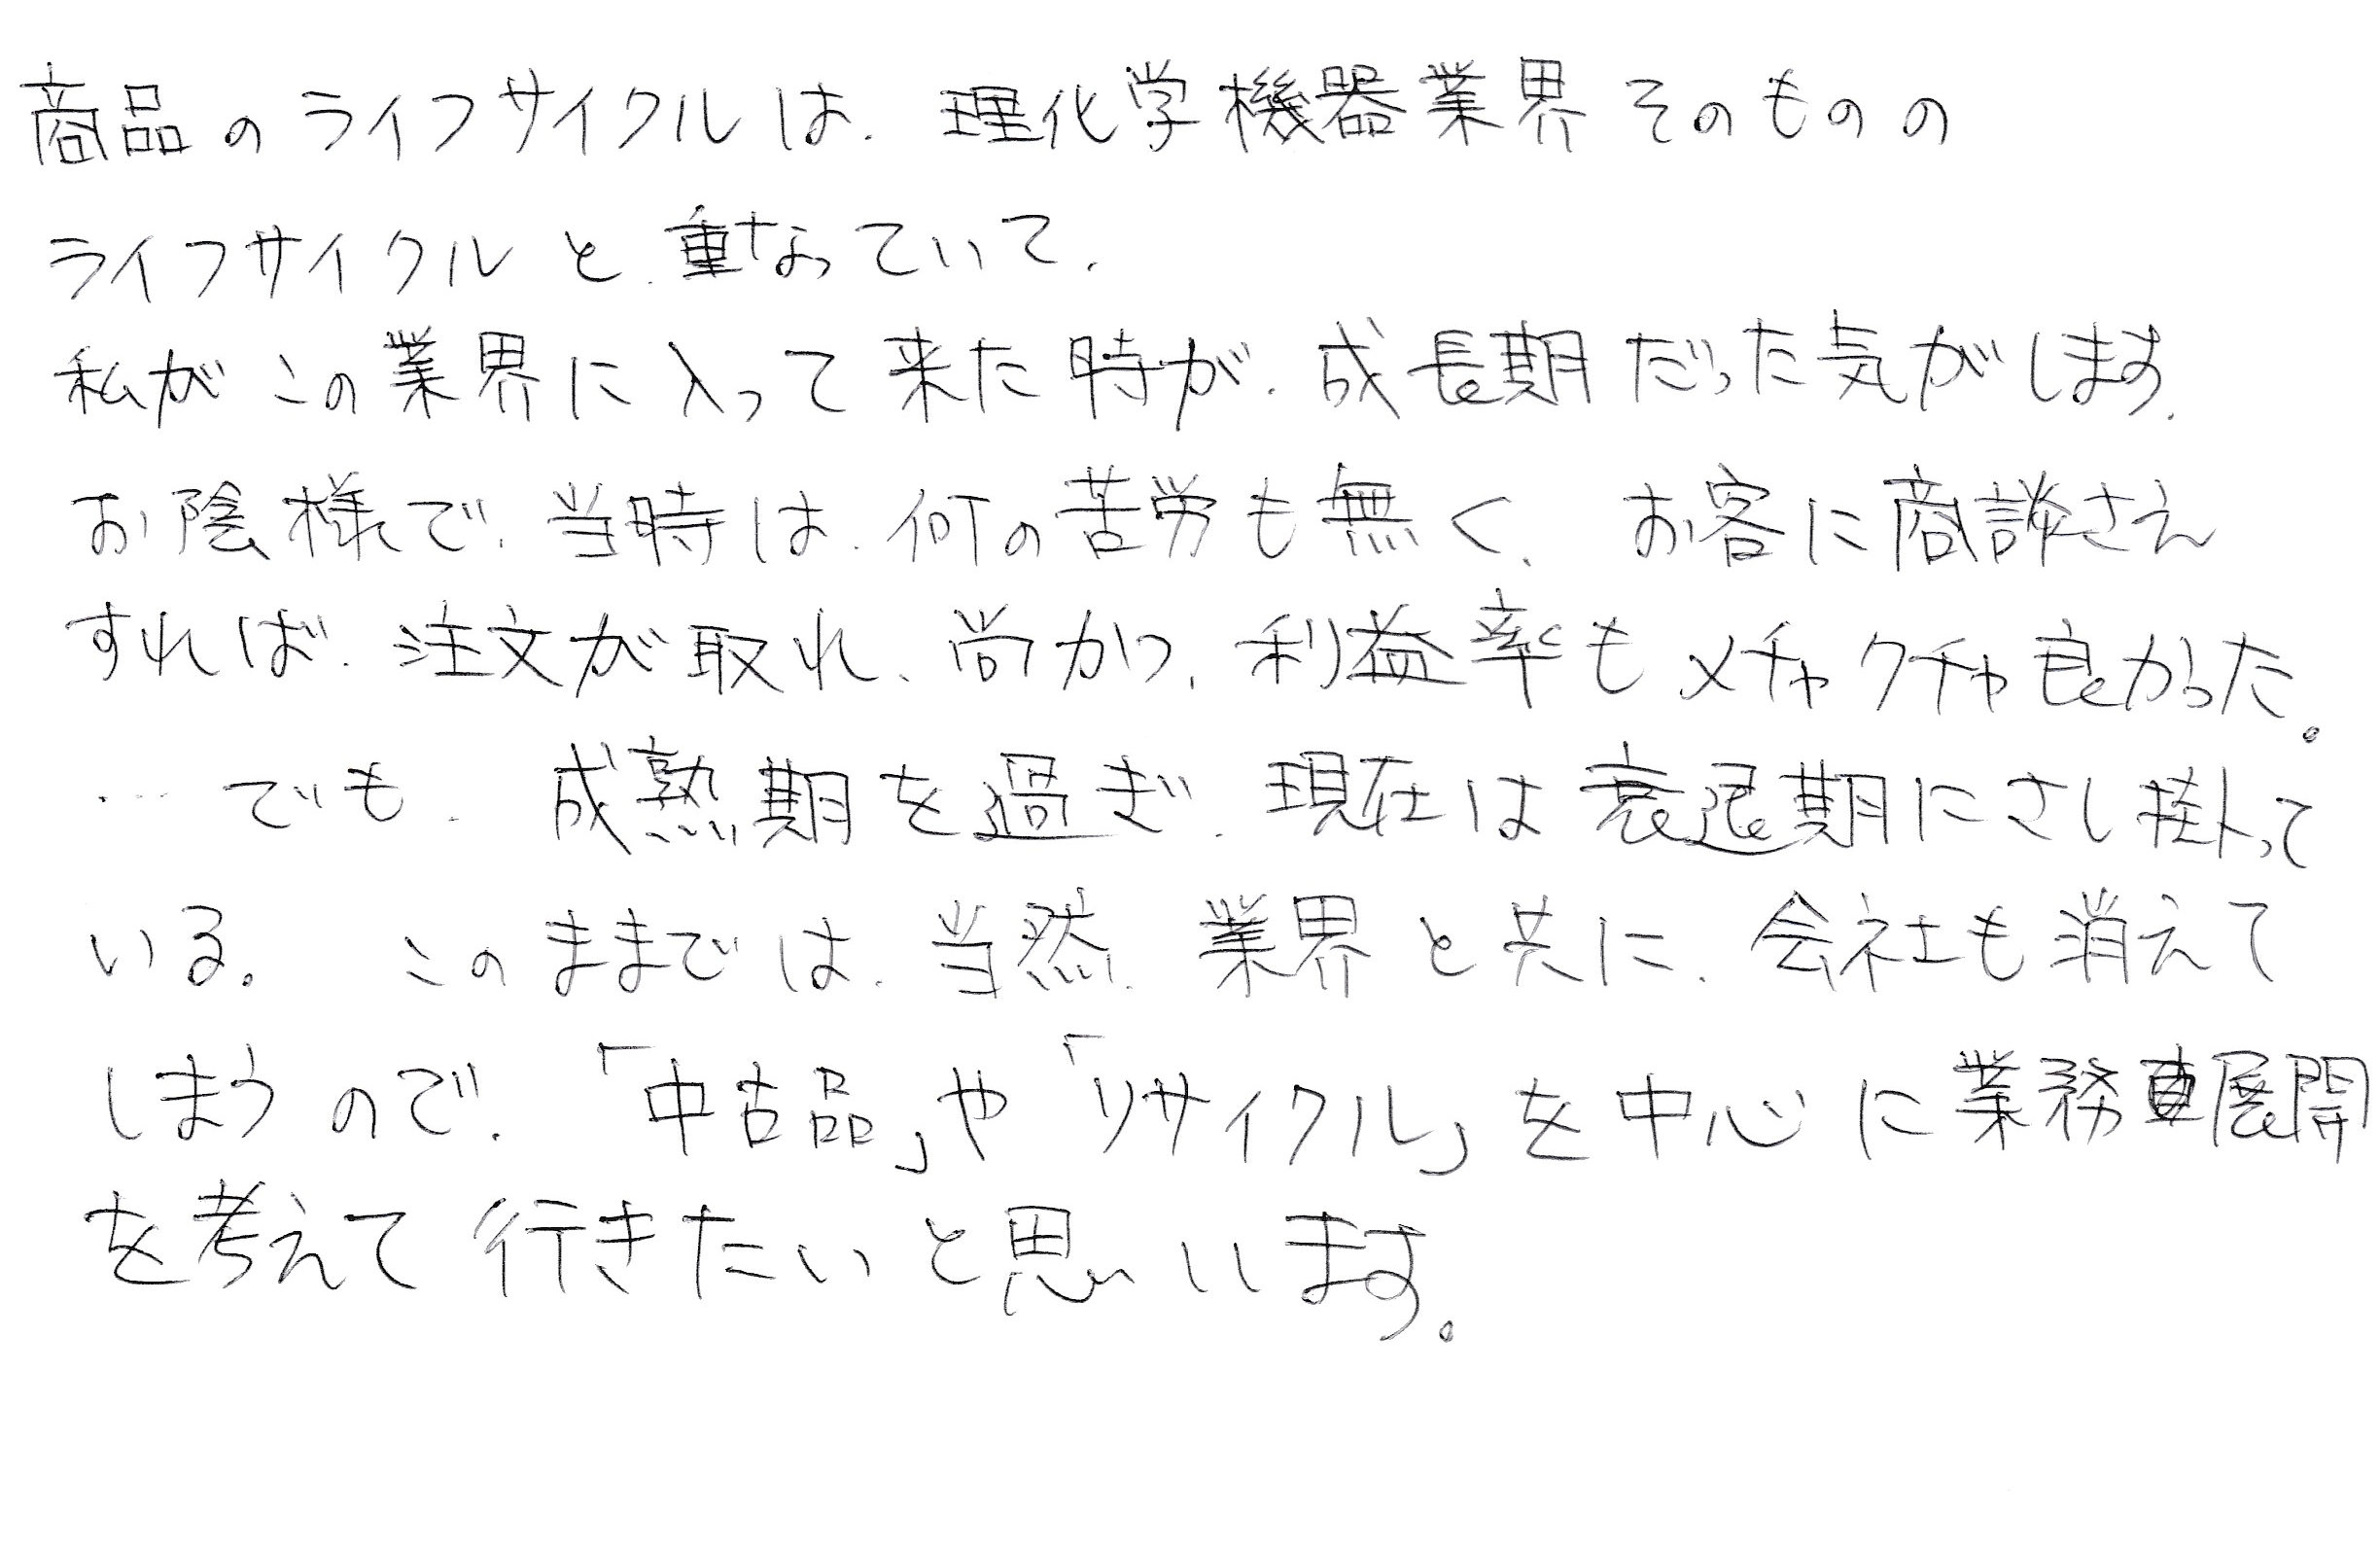 商品のライフサイクルは、理化学機器業界そのものの
ライフサイクルと、重なっていて、
私がこの業界に入って来た時が、成長期だった気がします。
お陰様で、当時は、何の苦労も無く、お客に商談さえ
すれば、注文が取れ、尚かつ、利益率もメチャクチャ良かった。
…でも、成熟期を過ぎ、現在は衰退期にさし掛って
いる。このままでは、当然、業界と共に、会社も消えて
しまうので、「中古品」や「リサイクル」を中心に業務展開
を考えて行きたいと思います。